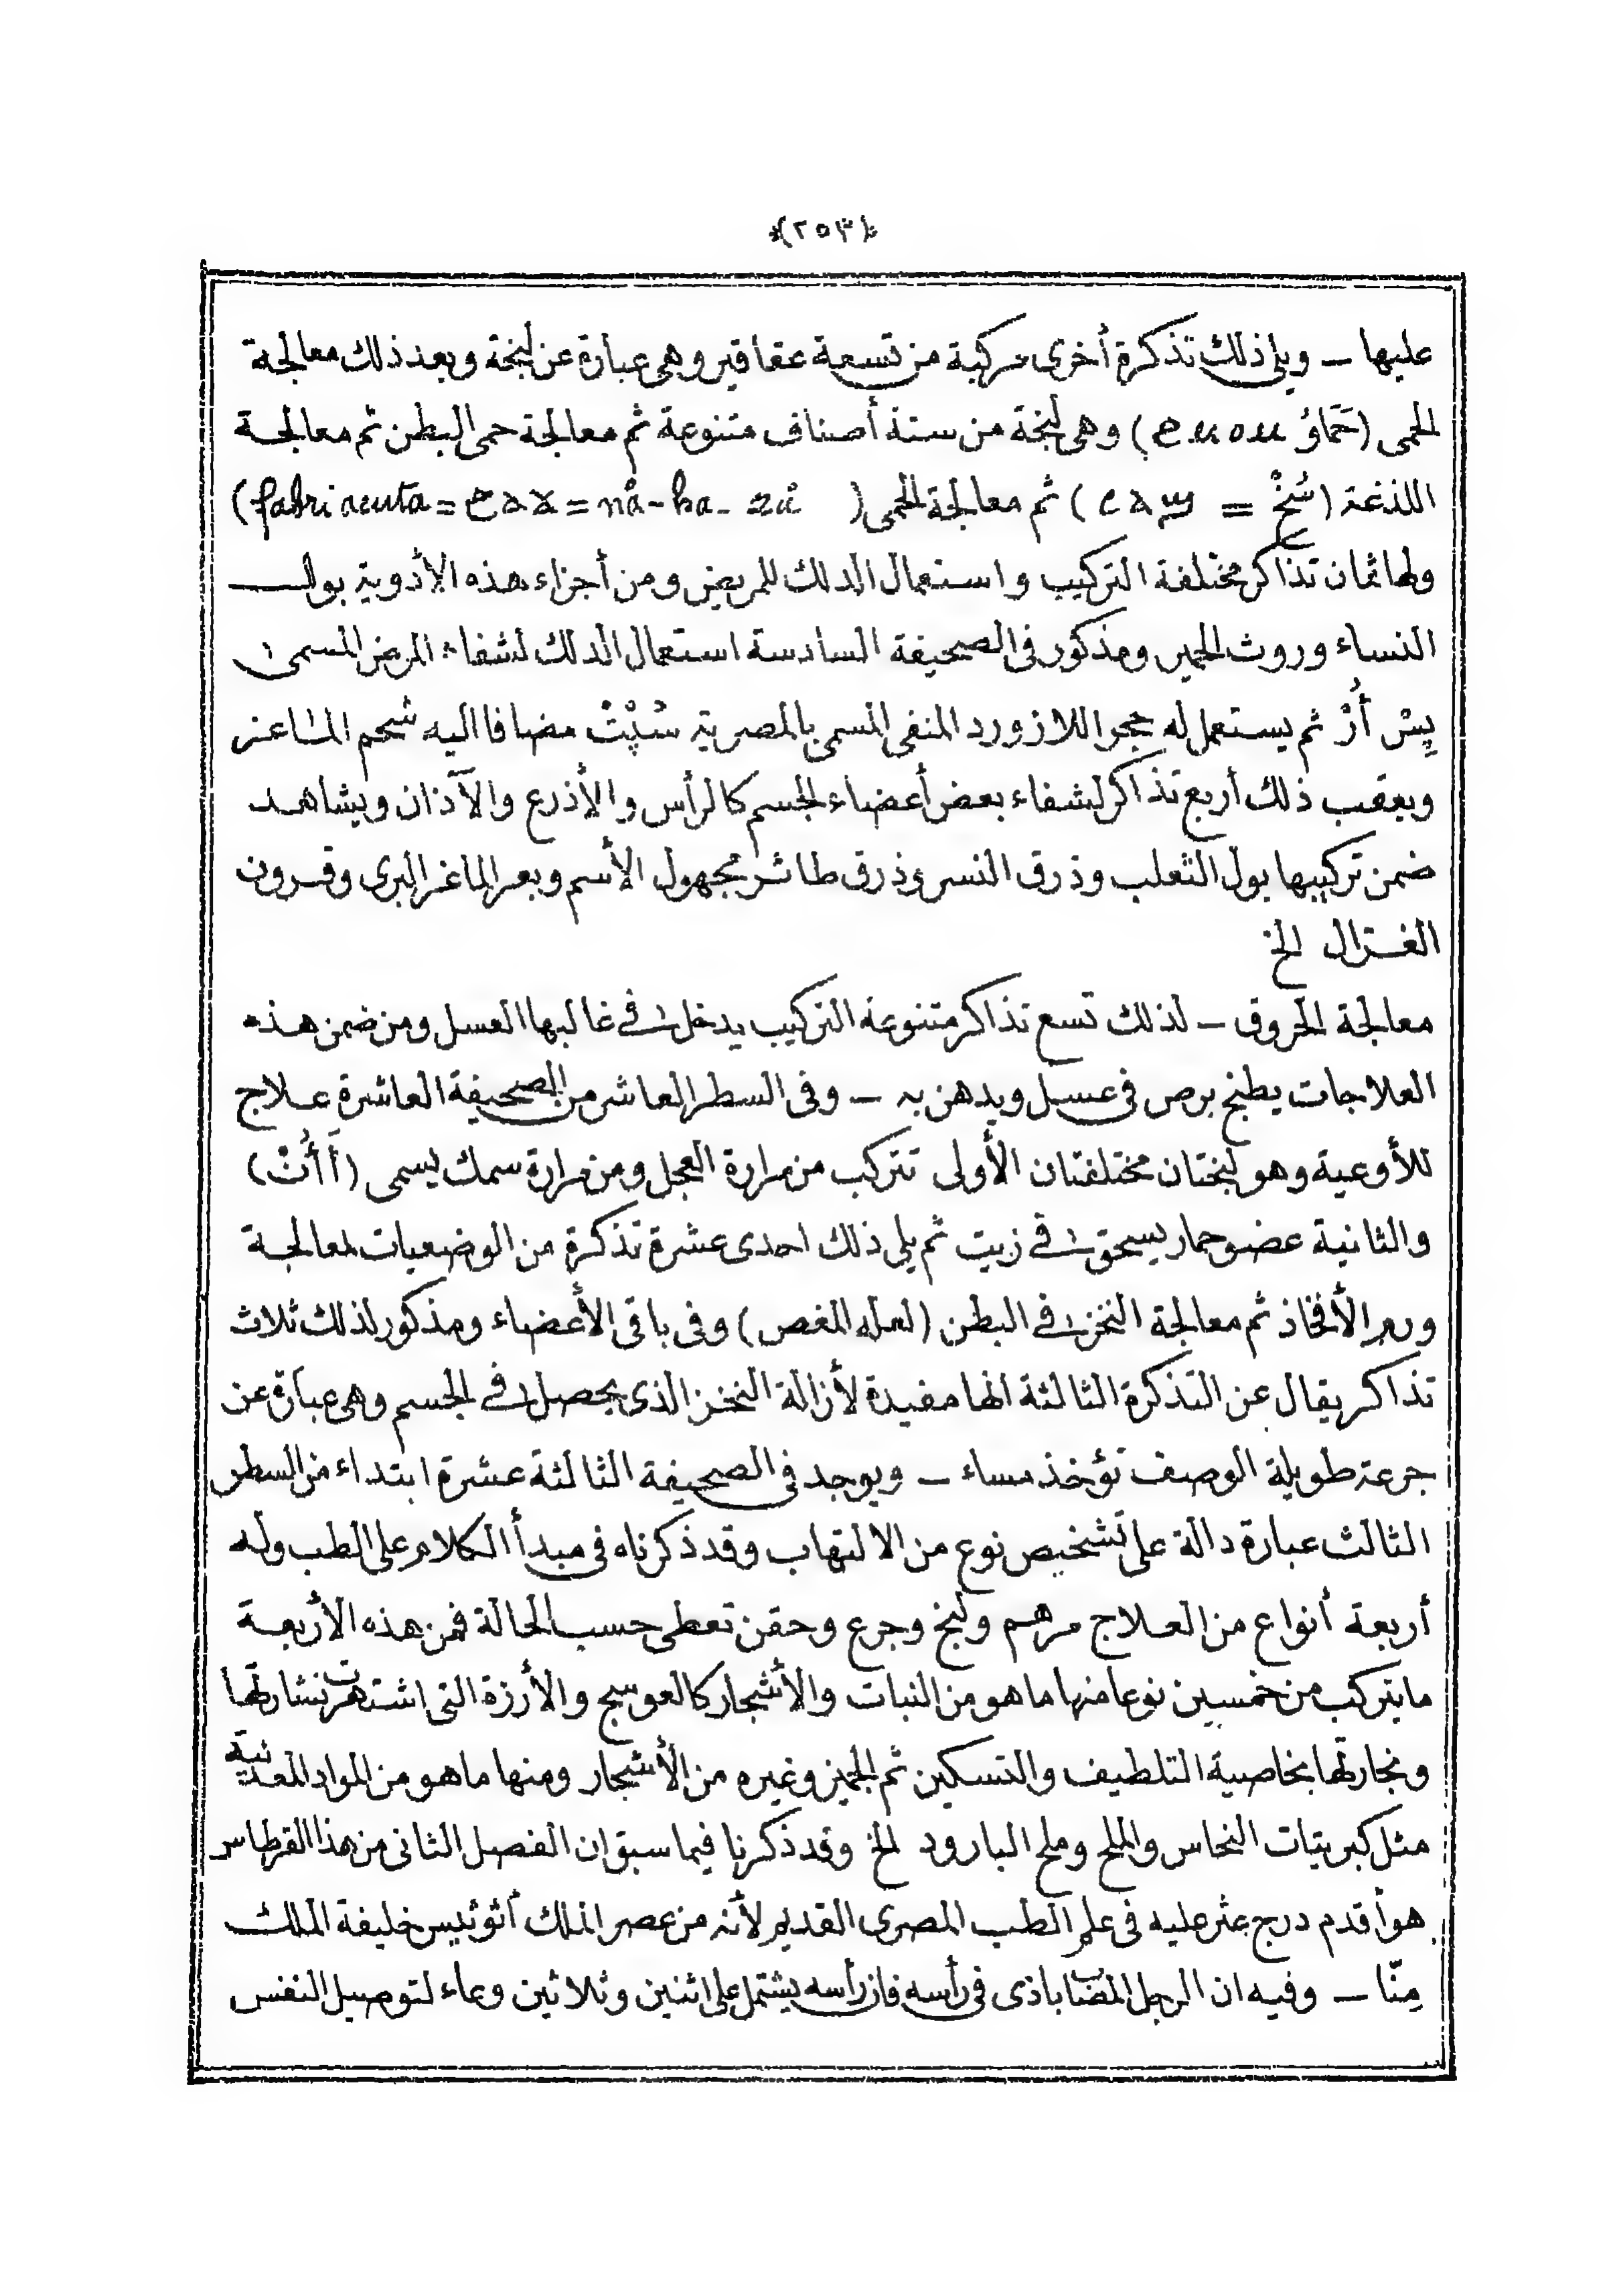 ﴿٢٥٣﴾
عليها — ويلى ذلك تذكرة أخرى مركبة من تسعة عقاقير وهى عبارة عن لبخة وبعد ذلك معالجة
الحمى (حَمَاوُ) وهى لبخة من ستة أصناف متنوعة ثم معالجة حمى البطن ثم معالجة
اللذغة (سُخْ =) ثم معالجة الحمى (fabri acuta = = nå-ha-)
ولها ثمان تذاكر مختلفة التركيب واستعمال الدلك للمريض ومن أجزاء هذه الأدوية بول
النساء وروث الحمير ومذكور فى الصحيفة السادسة استعمال الدلك لشفاء المرض المسمى
بِسْ أُرْ ثم يستعمل له حجر اللازورد المنفى المسمى بالمصرية سْبِتْ مضافا اليه شحم الماعز
ويعقب ذلك أربع تذاكر لشفاء بعض أعضاء الجسم كالرأس والأذرع والآذان ويشاهد
ضمن تركيبها بول الثعلب وذرق النسر وذرق طائر مجهول الأسم وبعر الماعز البرى وقرون
الغزال الخ
معالجة الحروق — لذلك تسع تذاكر متنوعة التركيب يدخل فى غالبها العسل ومن ضمن هذه
العلاجات يطبخ برص فى عسل ويدهن به — وفى السطر العاشر من الصحيفة العاشرة علاج
للأوعية وهو لبختان مختلفتان الأولى تتركب من مرارة العجل ومن مرارة سمك يسمى (أَأُتْ)
والثانية عضو حمار يسحق فى زيت ثم يلى ذلك احدى عشرة تذكرة من الوضعيات لمعالجة
ورم الأفخاذ ثم معالجة النخز فى البطن (لعله المغص) وفى باقى الأعضاء ومذكور لذلك ثلاث
تذاكر يقال عن التذكرة الثالثة انها مفيدة لأزالة النخز الذى يحصل فى الجسم وهى عبارة عن
جرعة طويلة الوصف تؤخذ مساء — ويوجد فى الصحيفة الثالثة عشرة ابتداء من السطر
الثالث عبارة دالة على تشخيص نوع من الالتهاب وقد ذكرناه فى مبدأ الكلام على الطب وله
أربعة أنواع من العلاج مرهم ولبخ وجرع وحقن تعطى حسب الحالة فمن هذه الأربعة
ما يتركب من خمسين نوعا منها ما هو من النبات والأشجار كالعوسج والأرزة التى اشتهرت نشارتها
ونجارتها بخاصية التلطيف والتسكين ثم الجميز وغيره من الأشجار ومنها ما هو من المواد المعدنية
مثل كبريتات النحاس والملح وملح البارود الخ وقد ذكرنا فيما سبق ان الفصل الثانى من هذا القرطاس
هو أقدم درج عثر عليه فى علم الطب المصرى القديم لأنه من عصر الملك أتوتيس خليفة الملك
مِنّا — وفيه ان الرجل المصاب باذى فى رأسه فان رأسه يشتمل على اثنين وثلاثين وعاء لتوصيل النفس